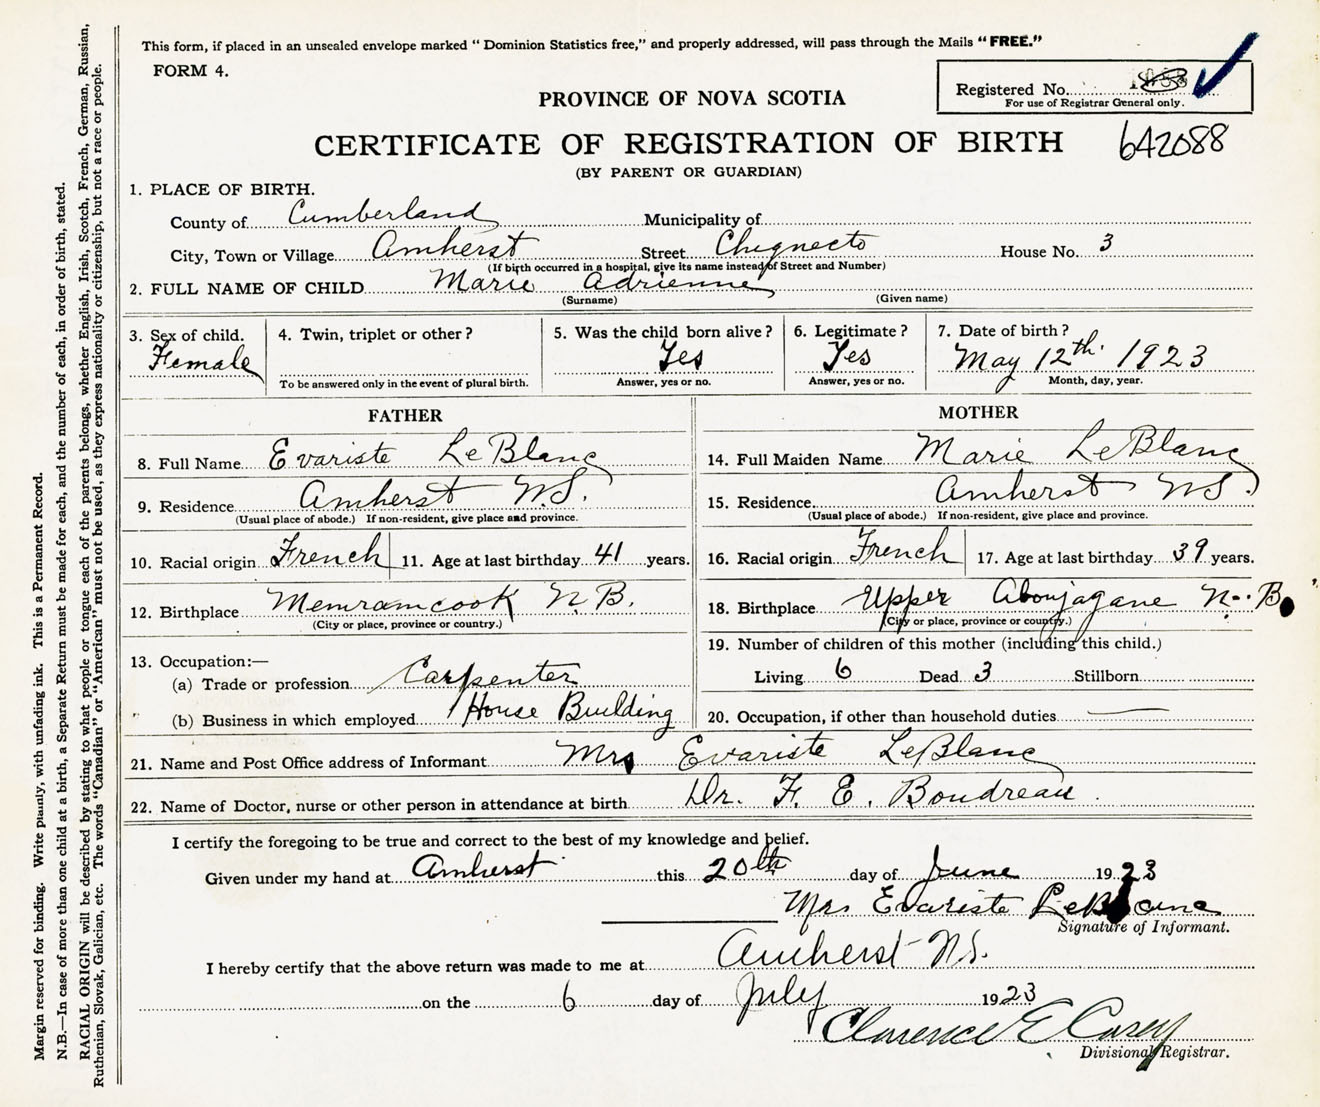 This form, if placed in an unsealed envelope marked " Dominion Statistics free," and properly addressed, will pass through the Mails " FREE."
FORM 4.
Registered No.
For use of Registrar General only.
PROVINCE OF NOVA SCOTIA
CERTIFICATE OF REGISTRATION OF BIRTH 642088
(BY PARENT OR GUARDIAN)
1. PLACE OF BIRTH.
County of Cumberland Municipality of
City, Town or Village Amherst Street Chignecto House No. 3
(If birth occurred in a hospital, give its name instead of Street and Number)
2. FULL NAME OF CHILD Marie Adrienne
(Surname) (Given name)
3. Sex of child. 4. Twin, triplet or other ? 5. Was the child born alive ? 6. Legitimate ? 7. Date of birth ?
Female Yes Yes May 12th. 1923
To be answered only in the event of plural birth. Answer, yes or no. Answer, yes or no. Month, day, year.
FATHER MOTHER
8. Full Name Evariste LeBlanc 14. Full Maiden Name Marie LeBlanc
9. Residence Amherst N.S. 15. Residence Amherst N.S.
(Usual place of abode.) If non-resident, give place and province. (Usual place of abode.) If non-resident, give place and province.
10. Racial origin French 11. Age at last birthday 41 years. 16. Racial origin French 17. Age at last birthday 39 years.
12. Birthplace Memramcook N.B. 18. Birthplace Upper Aboujagane N.B.
(City or place, province or country.) (City or place, province or country.)
19. Number of children of this mother (including this child.)
13. Occupation:—
(a) Trade or profession Carpenter Living 6 Dead 3 Stillborn
(b) Business in which employed House Building 20. Occupation, if other than household duties —
21. Name and Post Office address of Informant Mrs Evariste LeBlanc
22. Name of Doctor, nurse or other person in attendance at birth Dr. F. E. Boudreau.
I certify the foregoing to be true and correct to the best of my knowledge and belief.
Given under my hand at Amherst this 20th day of June 1923
Mrs Evariste LeBlanc
Signature of Informant.
I hereby certify that the above return was made to me at Amherst N.S.
on the 6 day of July 1923
Clarence E Casey
Divisional Registrar.
Margin reserved for binding. Write plainly, with unfading ink. This is a Permanent Record.
N.B.—In case of more than one child at a birth, a Separate Return must be made for each, and the number of each, in order of birth, stated.
RACIAL ORIGIN will be described by stating to what people or tongue each of the parents belongs, whether English, Irish, Scotch, French, German, Russian,
Ruthenian, Slovak, Galician, etc. The words "Canadian" or "American" must not be used, as they express nationality or citizenship, but not a race or people.